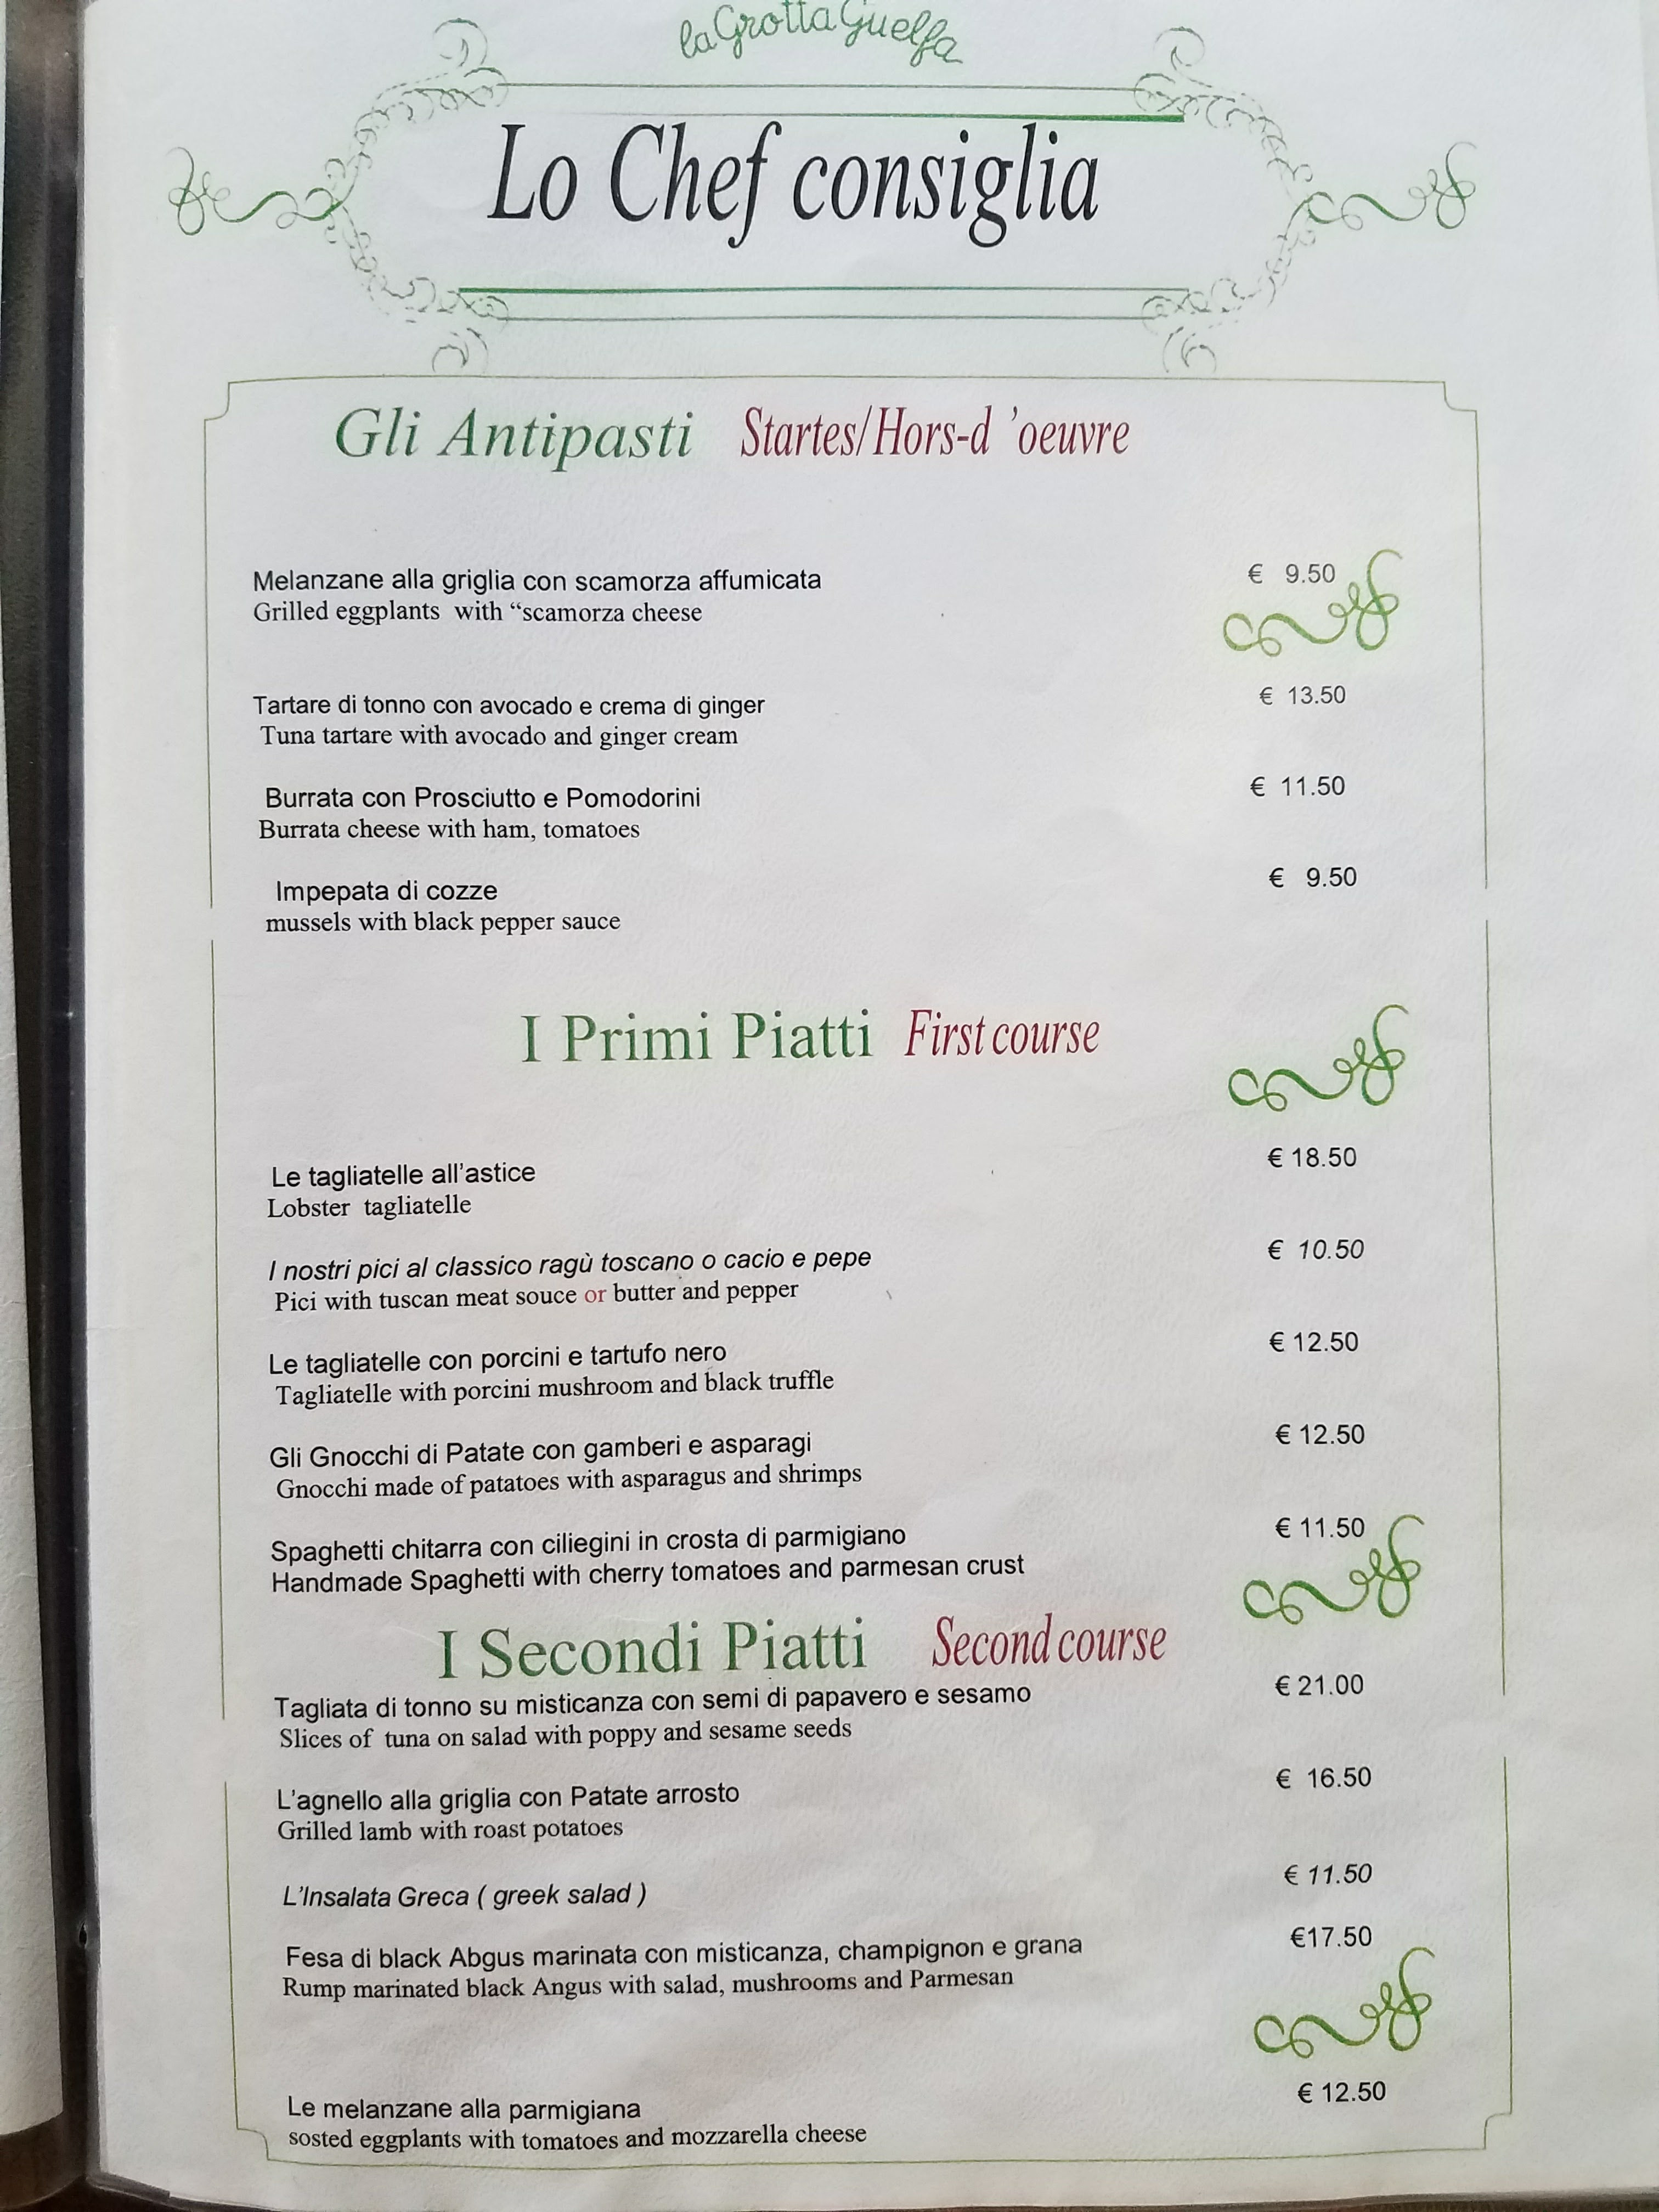 la Grotta Guelfa
Lo Chef consiglia
Gli Antipasti Startes/Hors-d 'oeuvre
Melanzane alla griglia con scamorza affumicata € 9.50
Grilled eggplants with “scamorza cheese
Tartare di tonno con avocado e crema di ginger € 13.50
Tuna tartare with avocado and ginger cream
Burrata con Prosciutto e Pomodorini € 11.50
Burrata cheese with ham, tomatoes
Impepata di cozze € 9.50
mussels with black pepper sauce
I Primi Piatti First course
Le tagliatelle all’astice € 18.50
Lobster tagliatelle
I nostri pici al classico ragù toscano o cacio e pepe € 10.50
Pici with tuscan meat souce or butter and pepper
Le tagliatelle con porcini e tartufo nero € 12.50
Tagliatelle with porcini mushroom and black truffle
Gli Gnocchi di Patate con gamberi e asparagi € 12.50
Gnocchi made of patatoes with asparagus and shrimps
Spaghetti chitarra con ciliegini in crosta di parmigiano € 11.50
Handmade Spaghetti with cherry tomatoes and parmesan crust
I Secondi Piatti Second course
Tagliata di tonno su misticanza con semi di papavero e sesamo € 21.00
Slices of tuna on salad with poppy and sesame seeds
L’agnello alla griglia con Patate arrosto € 16.50
Grilled lamb with roast potatoes
L’Insalata Greca ( greek salad ) € 11.50
Fesa di black Abgus marinata con misticanza, champignon e grana €17.50
Rump marinated black Angus with salad, mushrooms and Parmesan
Le melanzane alla parmigiana € 12.50
sosted eggplants with tomatoes and mozzarella cheese